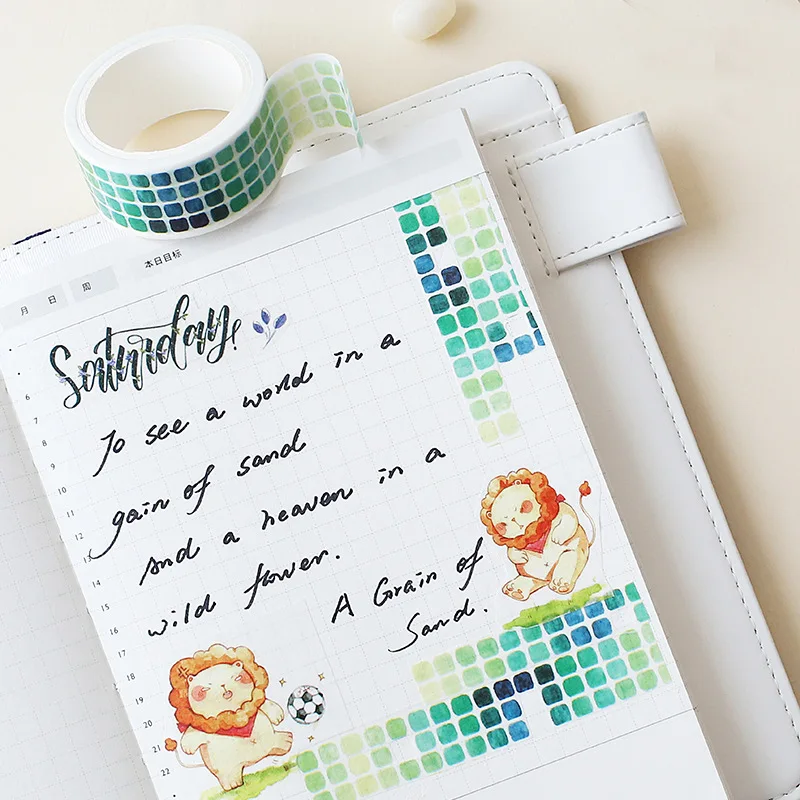 本日目标
月 日 周
Saturday!
To see a world in a
gain of sand
And a heaven in a
wild flower.
A Grain of
Sand.
6
7
8
9
10
11
12
13
14
15
16
17
18
19
20
21
22